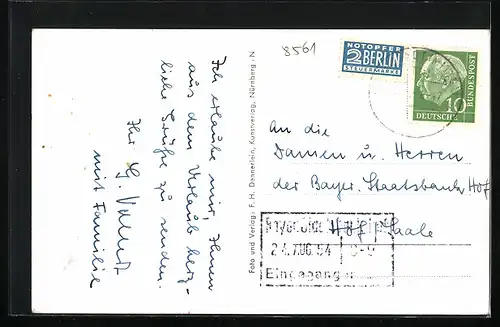 8561
NOTOPFER
2 BERLIN
STEUERMARKE
10
DEUTSCHE
BUNDESPOST
Ich erlaube mir, Ihnen
aus dem Urlaub herz-
liche Grüße zu senden.
Ihr
mit Familie
Foto und Verlag: F. H. Dannerlein, Kunstverlag, Nürnberg - N
An die
Damen u. Herren
der Bayer. Staatsbank Hof
Hof / Saale
24. AUG. 54
Eingegangen